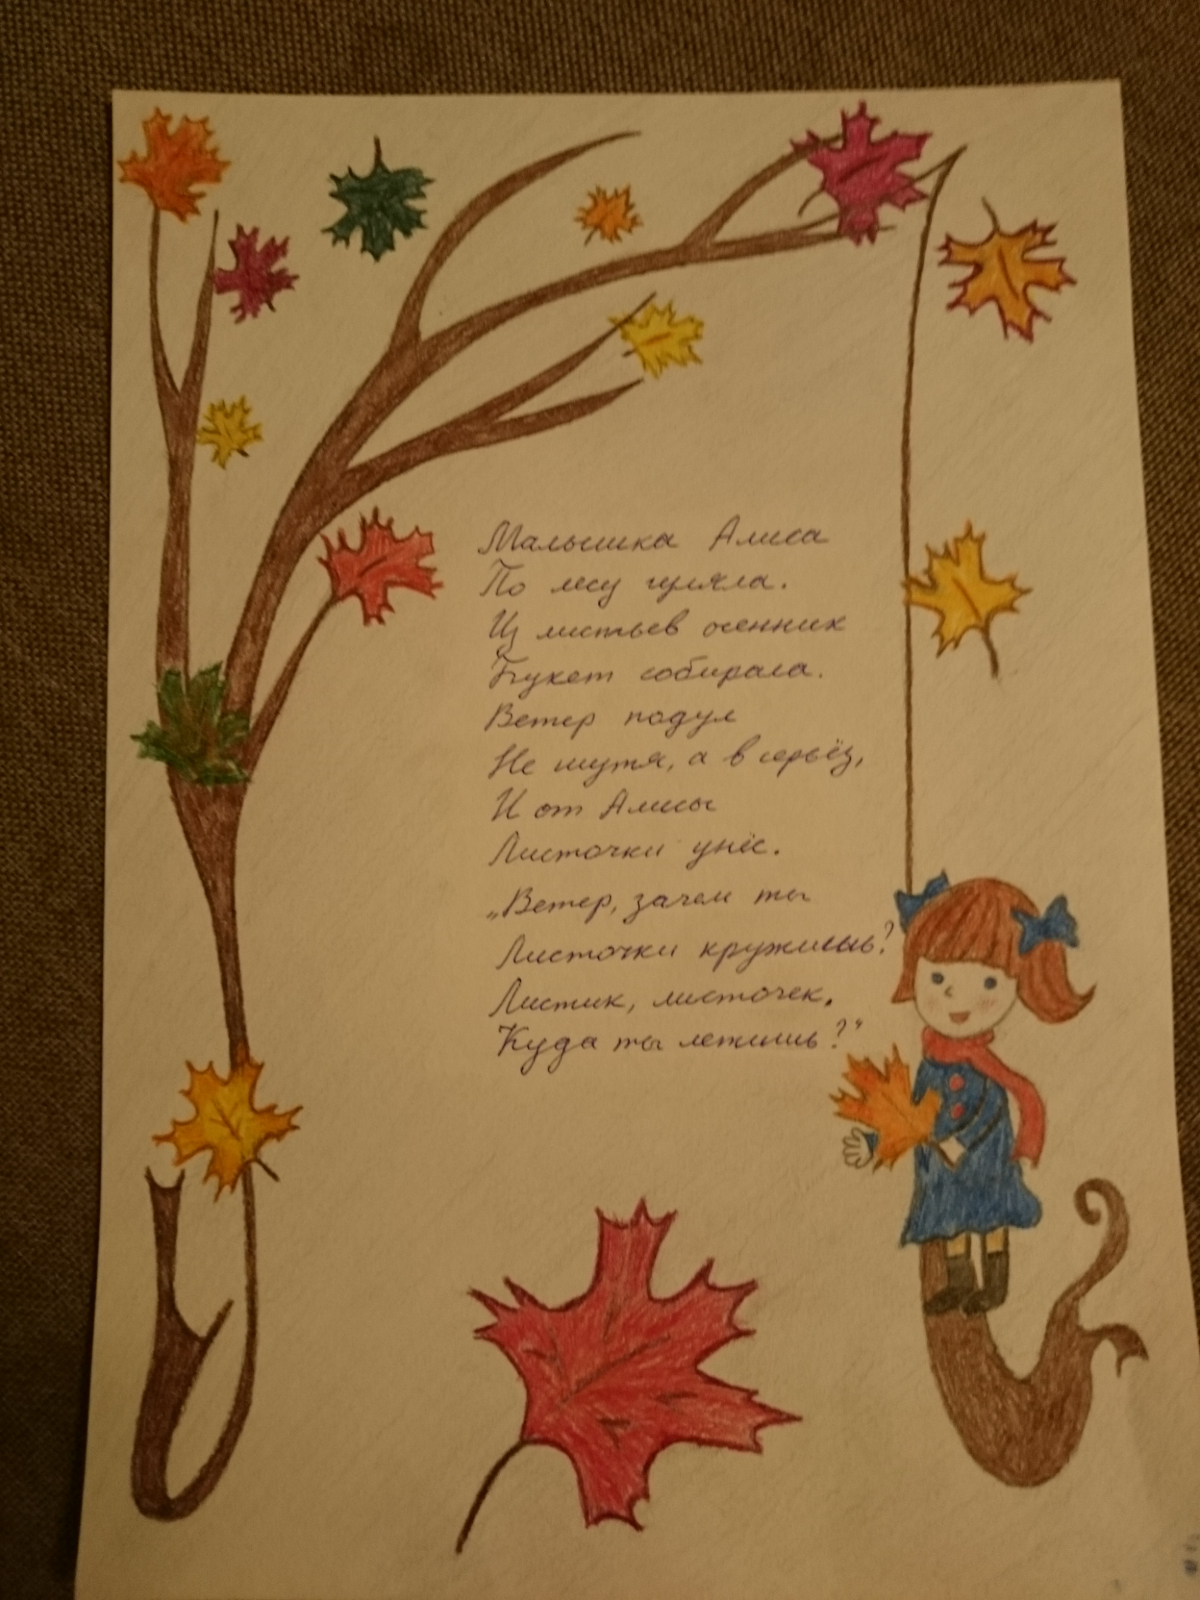 Малышка Алиса
По лесу гуляла.
Из листьев осенних
Букет собирала.
Ветер подул
Не шутя, а всерьёз,
И от Алисы
Листочки унёс.
„Ветер, зачем ты
Листочки кружишь?
Листик, листочек,
Куда ты летишь?"